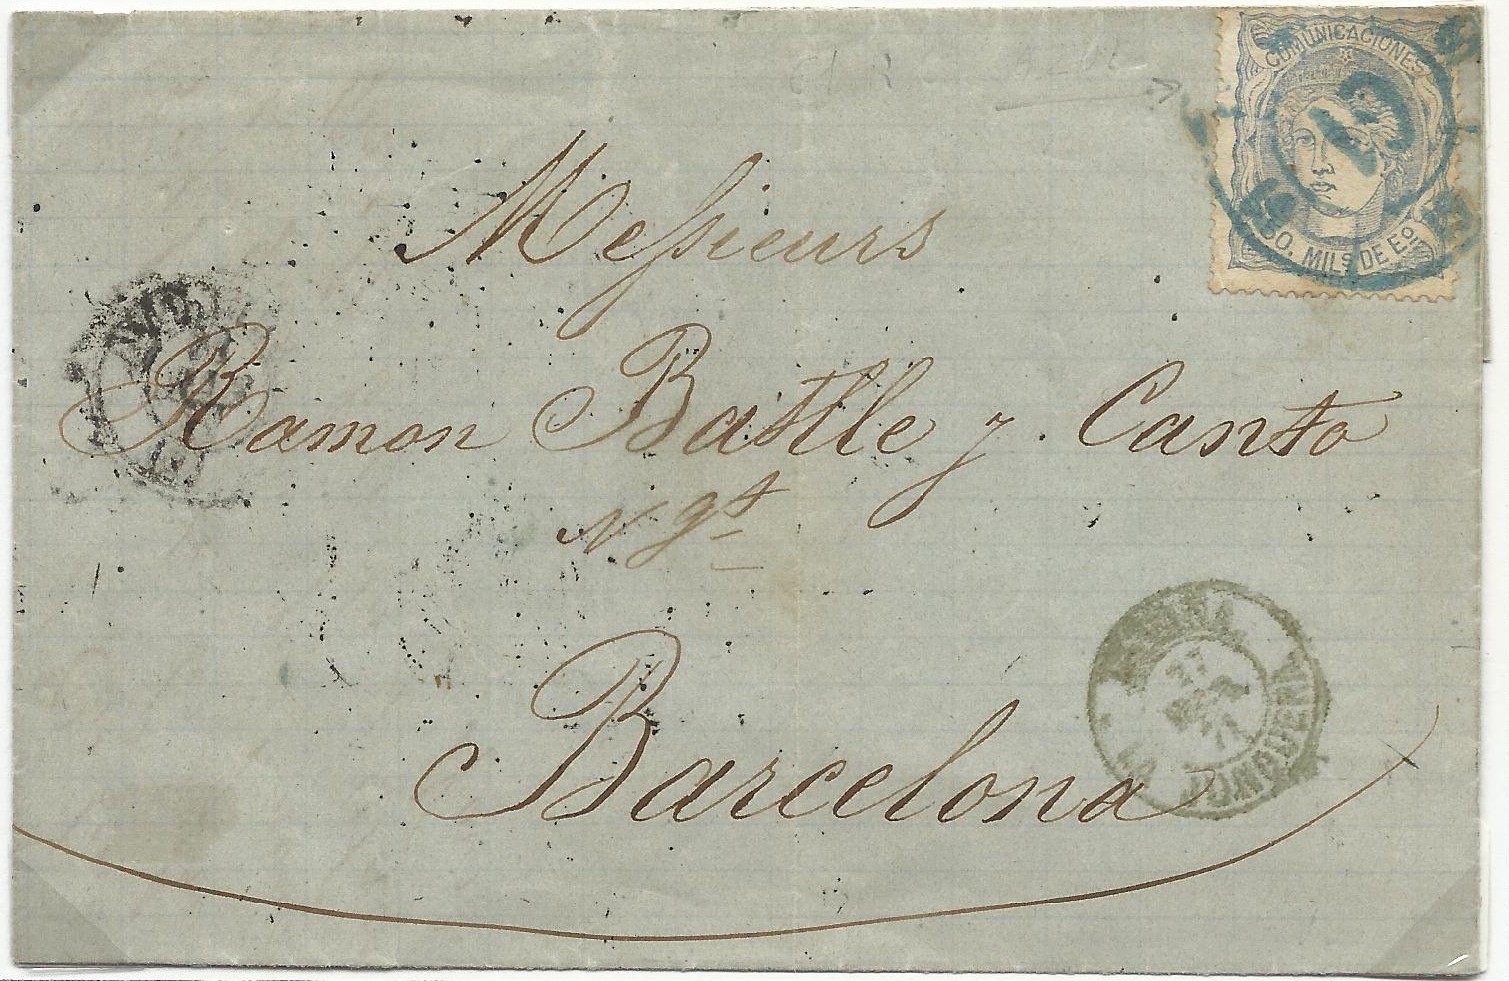 COMUNICACIONES
50. MILS DE EO
Messieurs
Ramon Batlle y Canto
Ngt
Barcelona